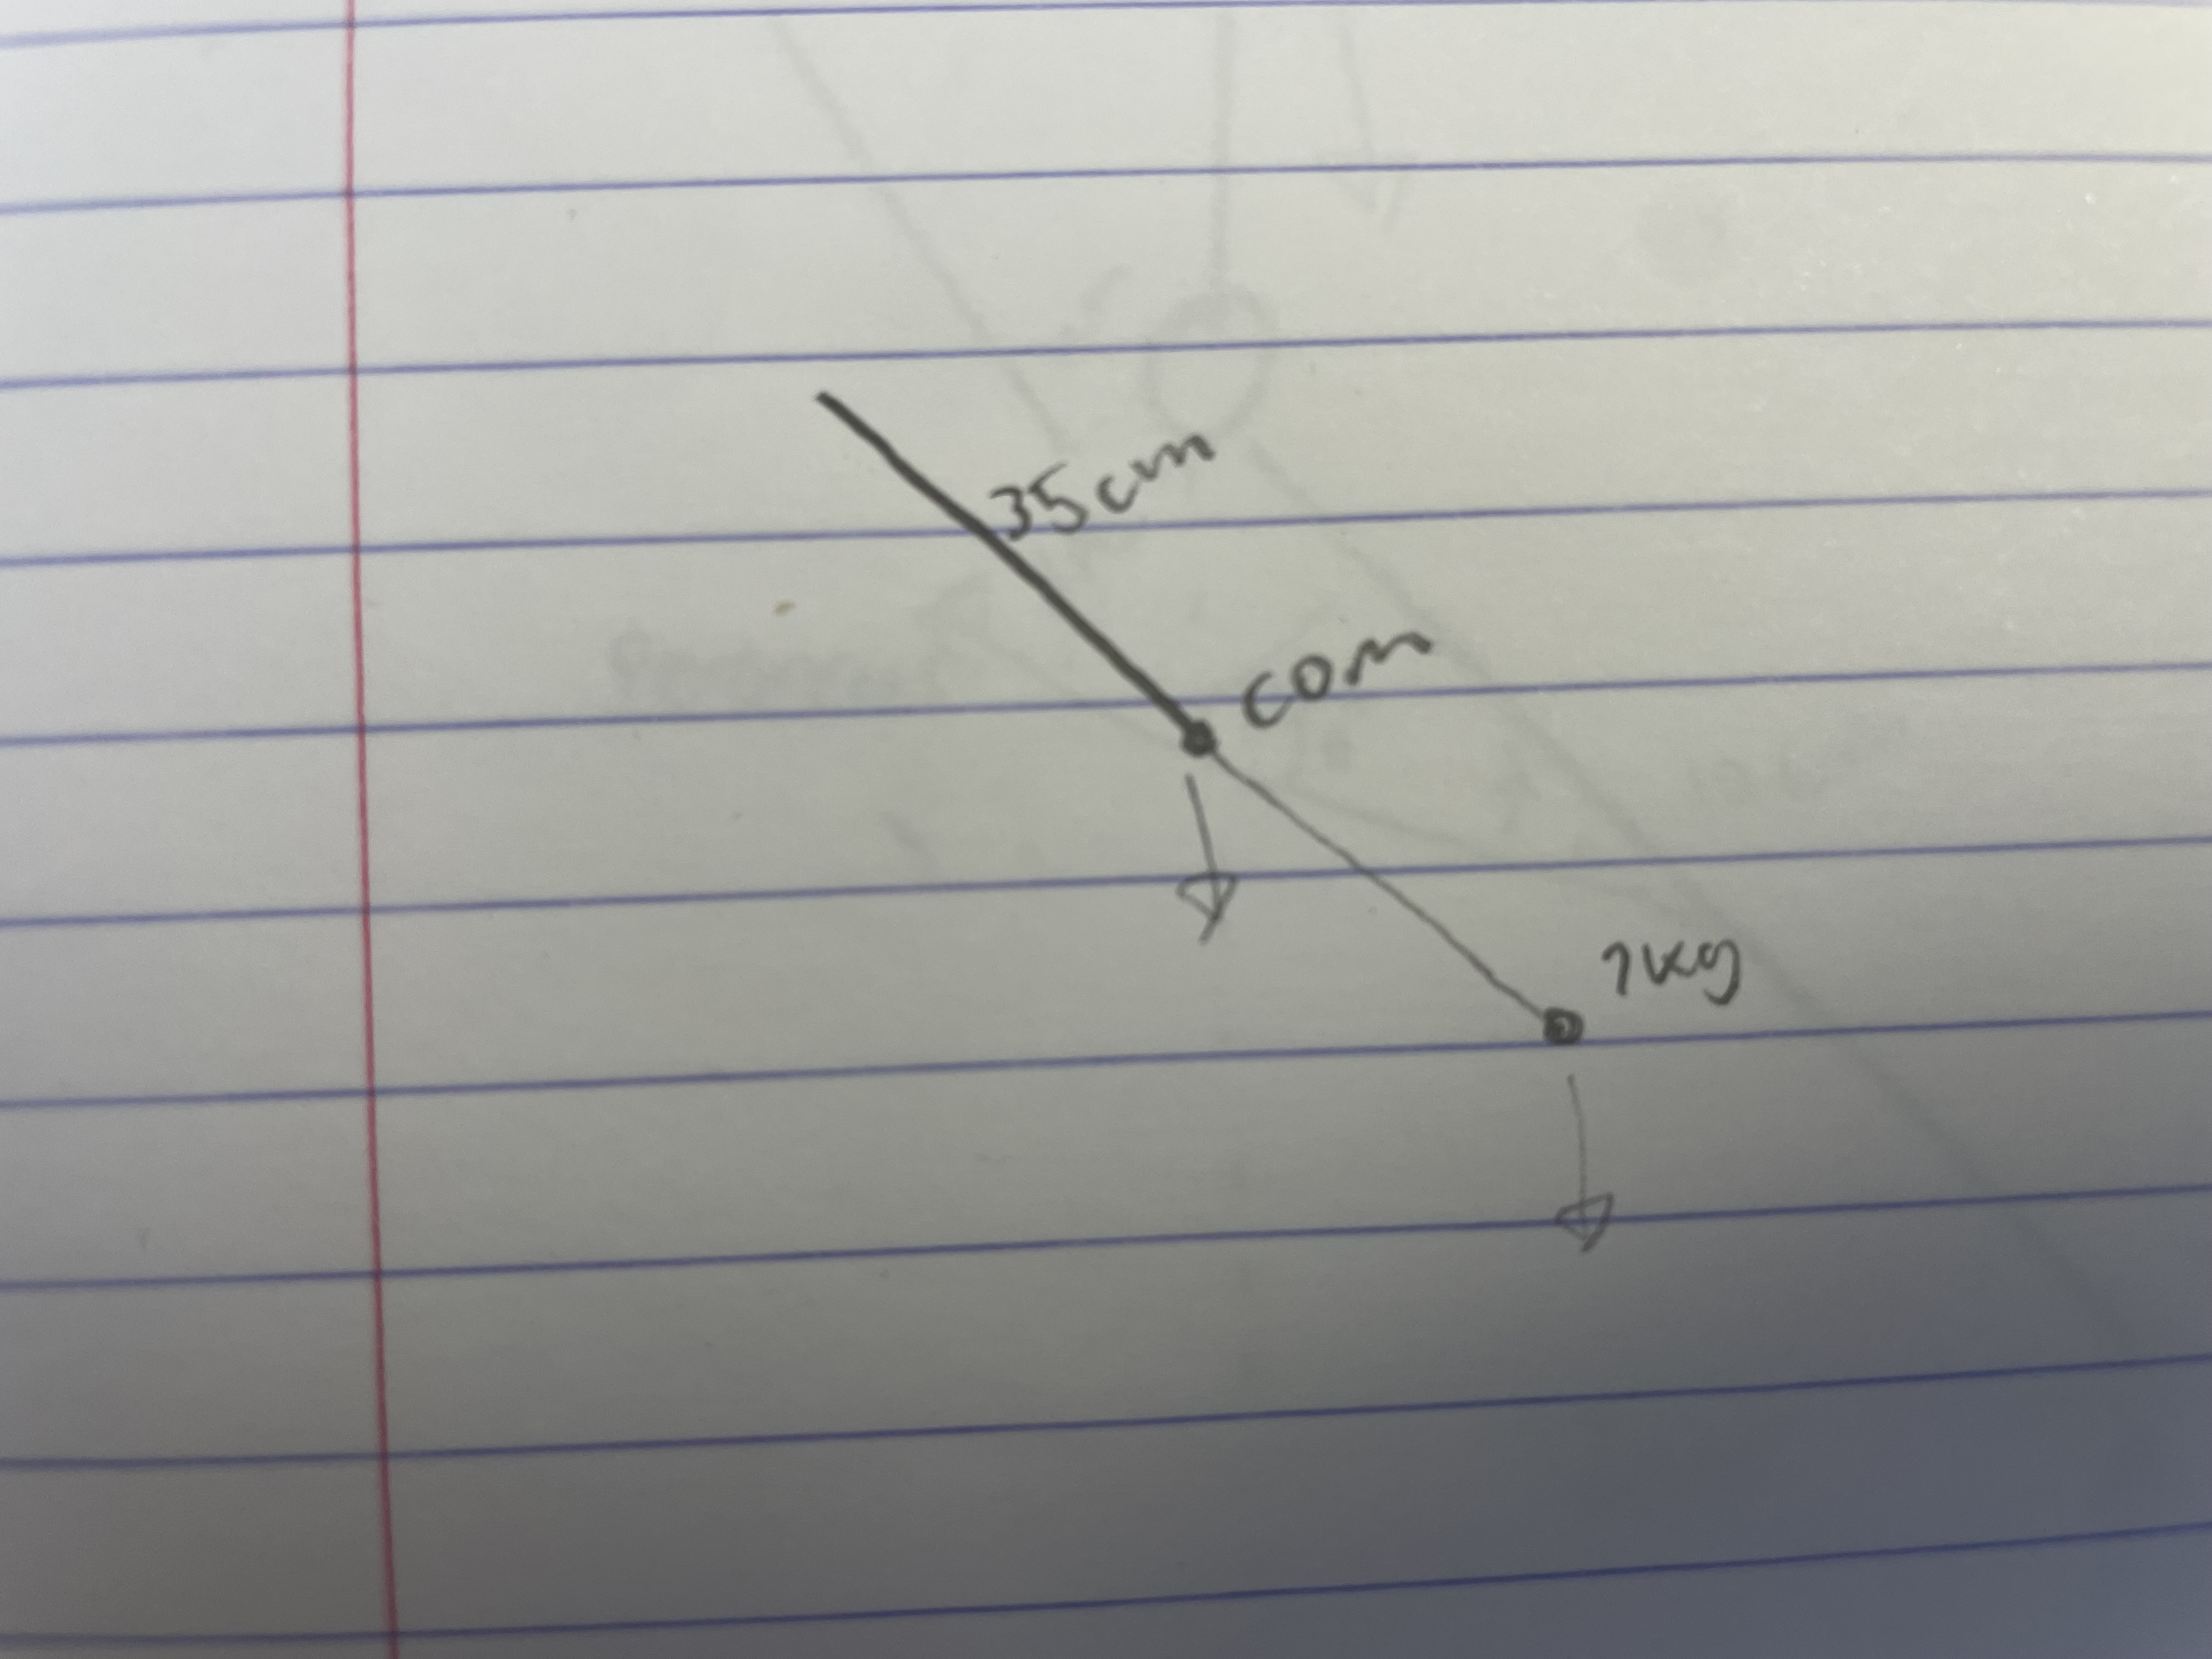 35cm
com
1kg